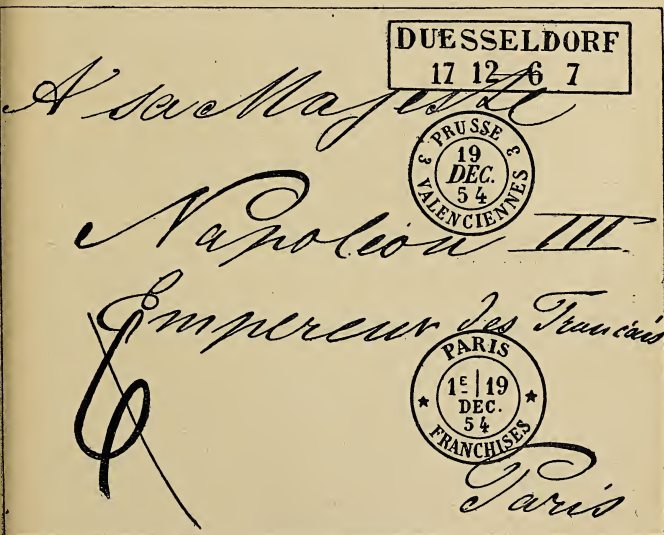 DUESSELDORF
17 12 6 7
A sa Majesté
PRUSSE
3 3
19
DEC.
54
VALENCIENNES
Napoléon III
Empereur des Francais
PARIS
1E 19
DEC.
54
FRANCHISES
6
Paris